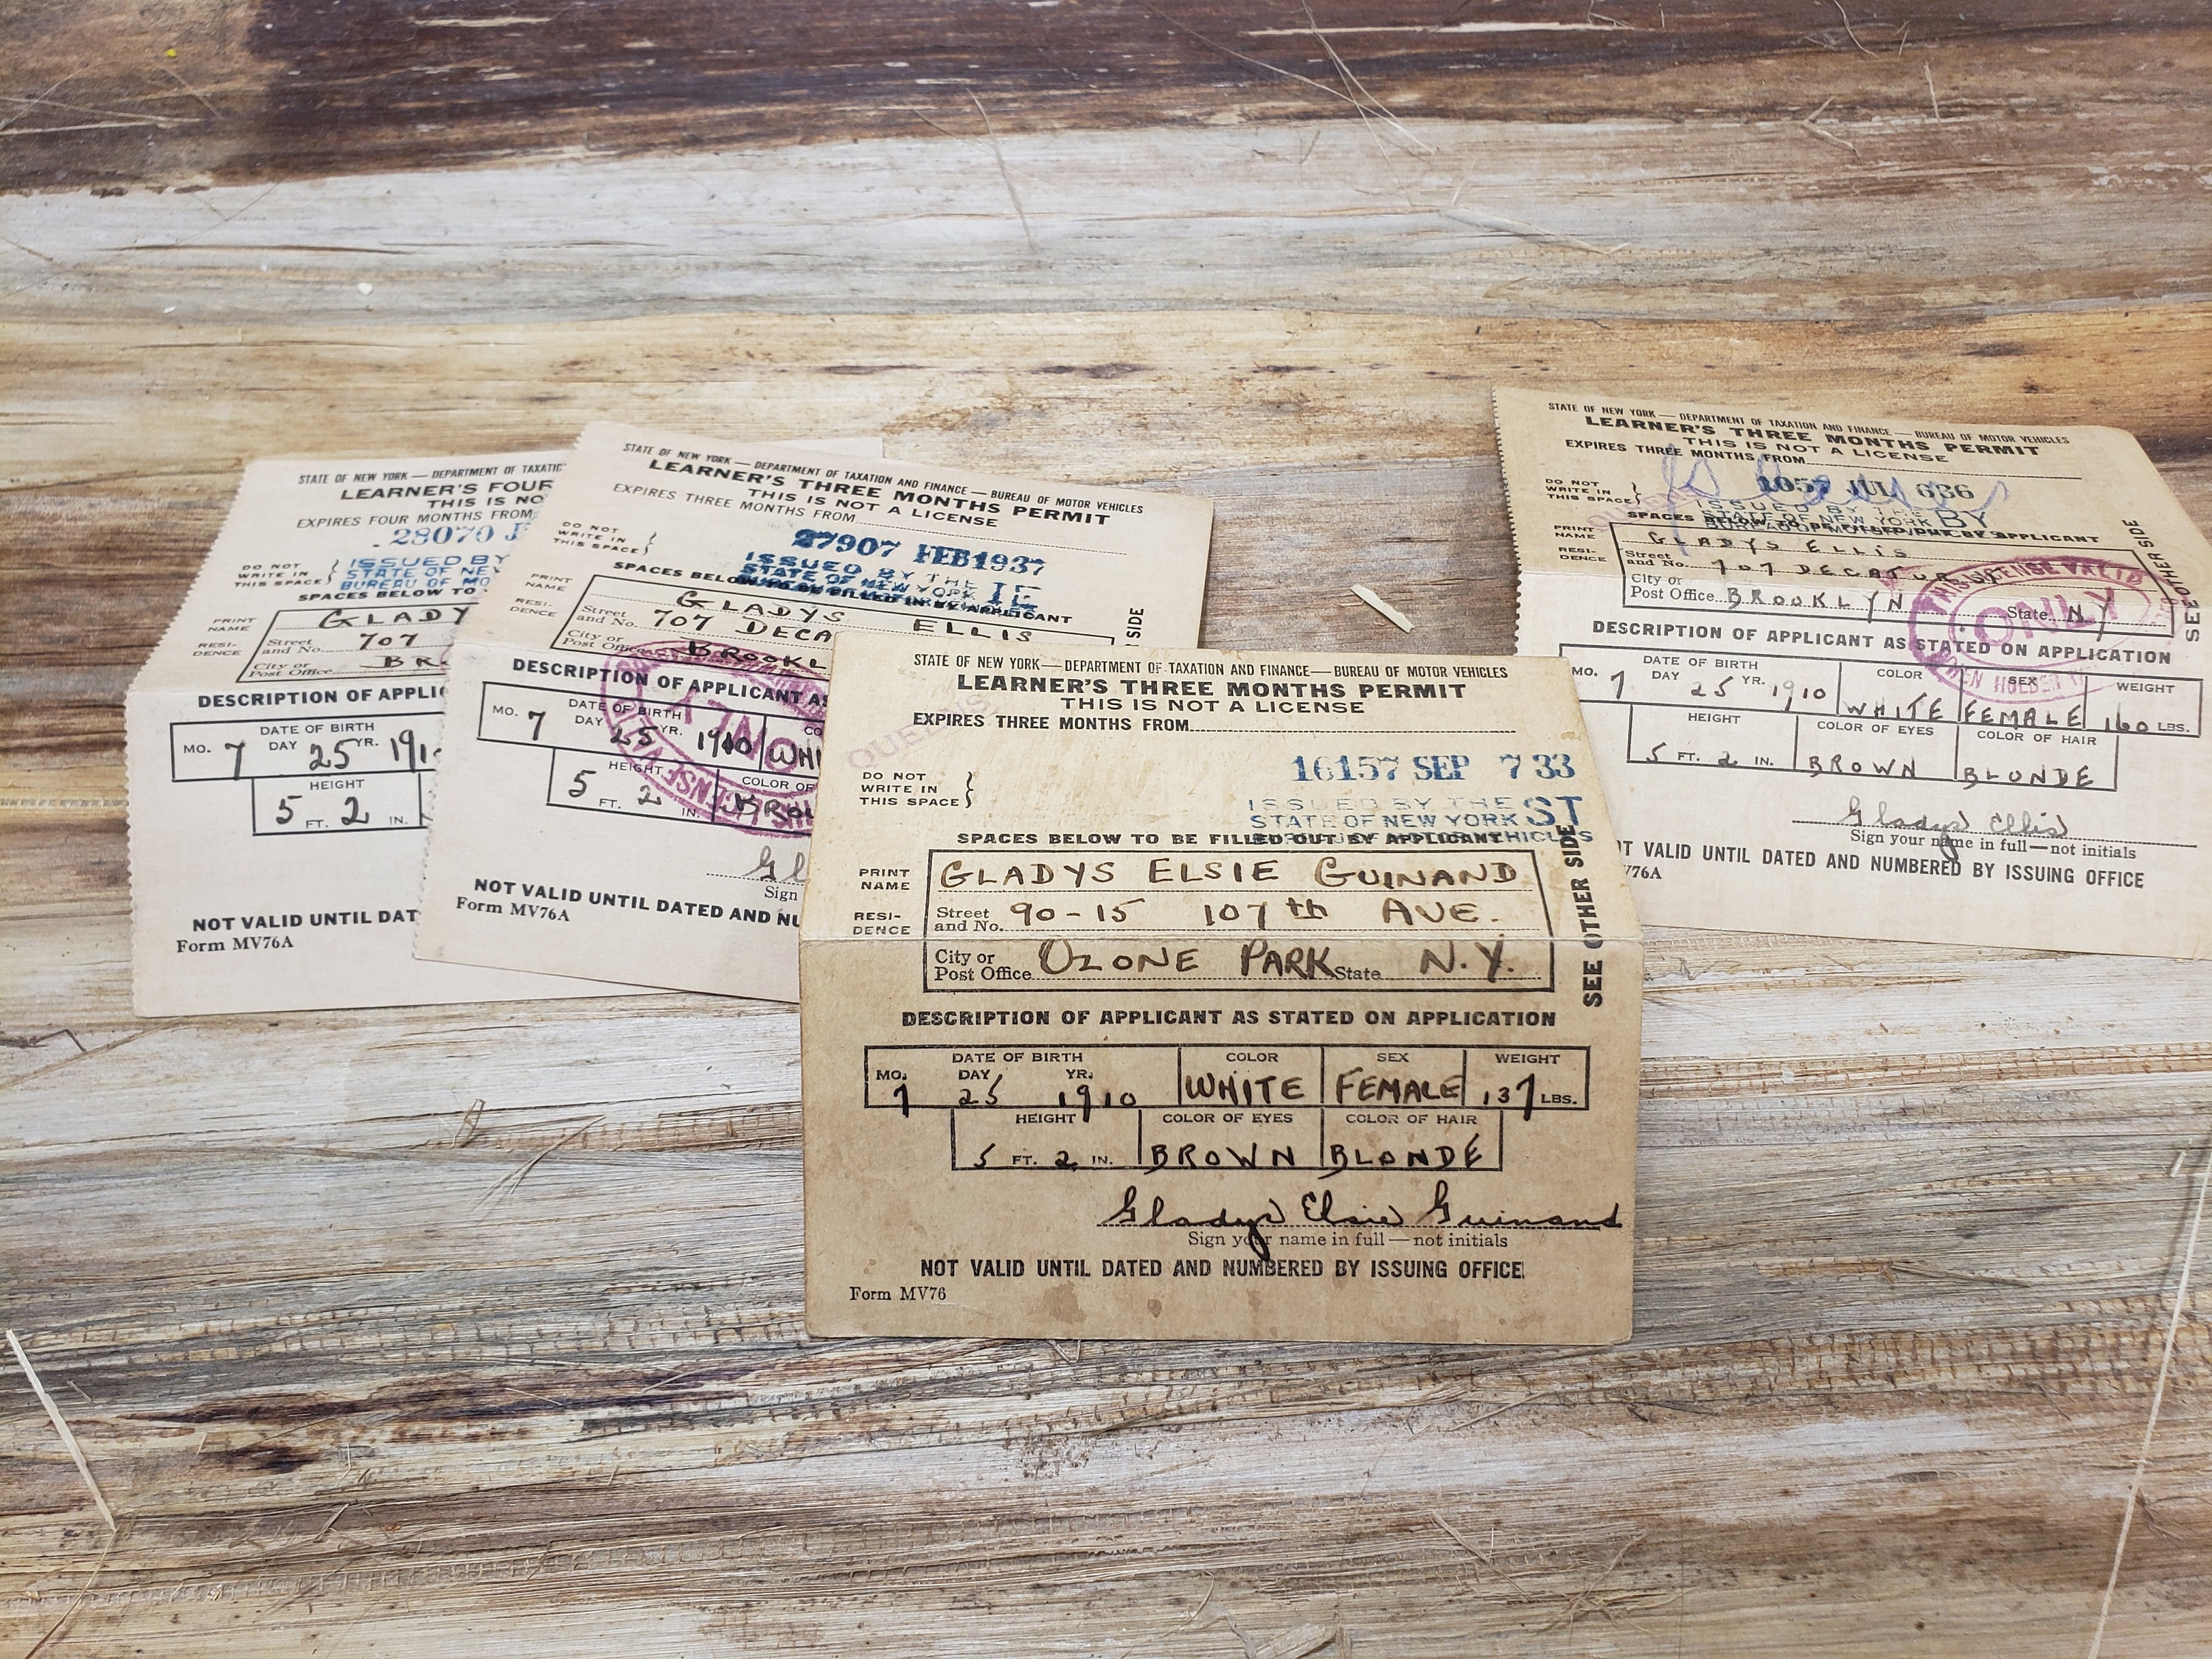 STATE OF NEW YORK — DEPARTMENT OF TAXATIC
LEARNER'S FOUR
THIS IS NO
EXPIRES FOUR MONTHS FROM
28070
DO NOT
WRITE IN
THIS SPACE
ISSUED BY
STATE OF NEW
BUREAU OF MO
SPACES BELOW TO
PRINT
NAME
GLADY
RESI-
DENCE
Street
and No. 707
City or
Post Office BR
DESCRIPTION OF APPLIC
DATE OF BIRTH
MO. 7 DAY 25 YR. 191
HEIGHT
5 FT. 2 IN.
NOT VALID UNTIL DAT
Form MV76A
STATE OF NEW YORK — DEPARTMENT OF TAXATION AND FINANCE — BUREAU OF MOTOR VEHICLES
LEARNER'S THREE MONTHS PERMIT
THIS IS NOT A LICENSE
EXPIRES THREE MONTHS FROM
DO NOT
WRITE IN
THIS SPACE
27907 FEB 1937
ISSUED BY THE
STATE OF NEW YORK IE
SPACES BELOW TO BE FILLED IN BY APPLICANT
PRINT
NAME
GLADYS ELLIS
RESI-
DENCE
Street
and No. 707 DECA
City or
Post Office BROOKL
SIDE
DESCRIPTION OF APPLICANT AS
DATE OF BIRTH
MO. 7 DAY 25 YR. 1910
CO
WHI
HEIGHT
5 FT. 2 IN.
COLOR OF
BRO
ONLY
Gl
Sign
NOT VALID UNTIL DATED AND NU
Form MV76A
STATE OF NEW YORK — DEPARTMENT OF TAXATION AND FINANCE — BUREAU OF MOTOR VEHICLES
LEARNER'S THREE MONTHS PERMIT
THIS IS NOT A LICENSE
EXPIRES THREE MONTHS FROM
QUEENS
DO NOT
WRITE IN
THIS SPACE
16157 SEP 7 33
ISSUED BY THE
STATE OF NEW YORK ST
SPACES BELOW TO BE FILLED OUT BY APPLICANT
PRINT
NAME
GLADYS ELSIE GUINAND
RESI-
DENCE
Street
and No. 90-15 107th AVE.
City or
Post Office OZONE PARK State N.Y.
SEE OTHER SIDE
DESCRIPTION OF APPLICANT AS STATED ON APPLICATION
DATE OF BIRTH COLOR SEX WEIGHT
MO. DAY YR.
7 25 1910 WHITE FEMALE 137 LBS.
HEIGHT COLOR OF EYES COLOR OF HAIR
5 FT. 2 IN. BROWN BLONDE
Gladys Elsie Guinand
Sign your name in full — not initials
NOT VALID UNTIL DATED AND NUMBERED BY ISSUING OFFICE
Form MV76
STATE OF NEW YORK — DEPARTMENT OF TAXATION AND FINANCE — BUREAU OF MOTOR VEHICLES
LEARNER'S THREE MONTHS PERMIT
THIS IS NOT A LICENSE
EXPIRES THREE MONTHS FROM
DO NOT
WRITE IN
THIS SPACE
1057 JUL 636
ISSUED BY THE
STATE OF NEW YORK BY
SPACES BELOW TO BE FILLED IN BY APPLICANT
PRINT
NAME
GLADYS ELLIS
RESI-
DENCE
Street
and No. 707 DECATUR ST
City or
Post Office BROOKLYN State N.Y
SEE OTHER SIDE
THIS LICENSE VALID
ONLY
WHEN HOLDER
DESCRIPTION OF APPLICANT AS STATED ON APPLICATION
DATE OF BIRTH COLOR SEX WEIGHT
MO. 7 DAY 25 YR. 1910 WHITE FEMALE 160 LBS.
HEIGHT COLOR OF EYES COLOR OF HAIR
5 FT. 2 IN. BROWN BLONDE
Gladys Ellis
Sign your name in full — not initials
T VALID UNTIL DATED AND NUMBERED BY ISSUING OFFICE
V76A